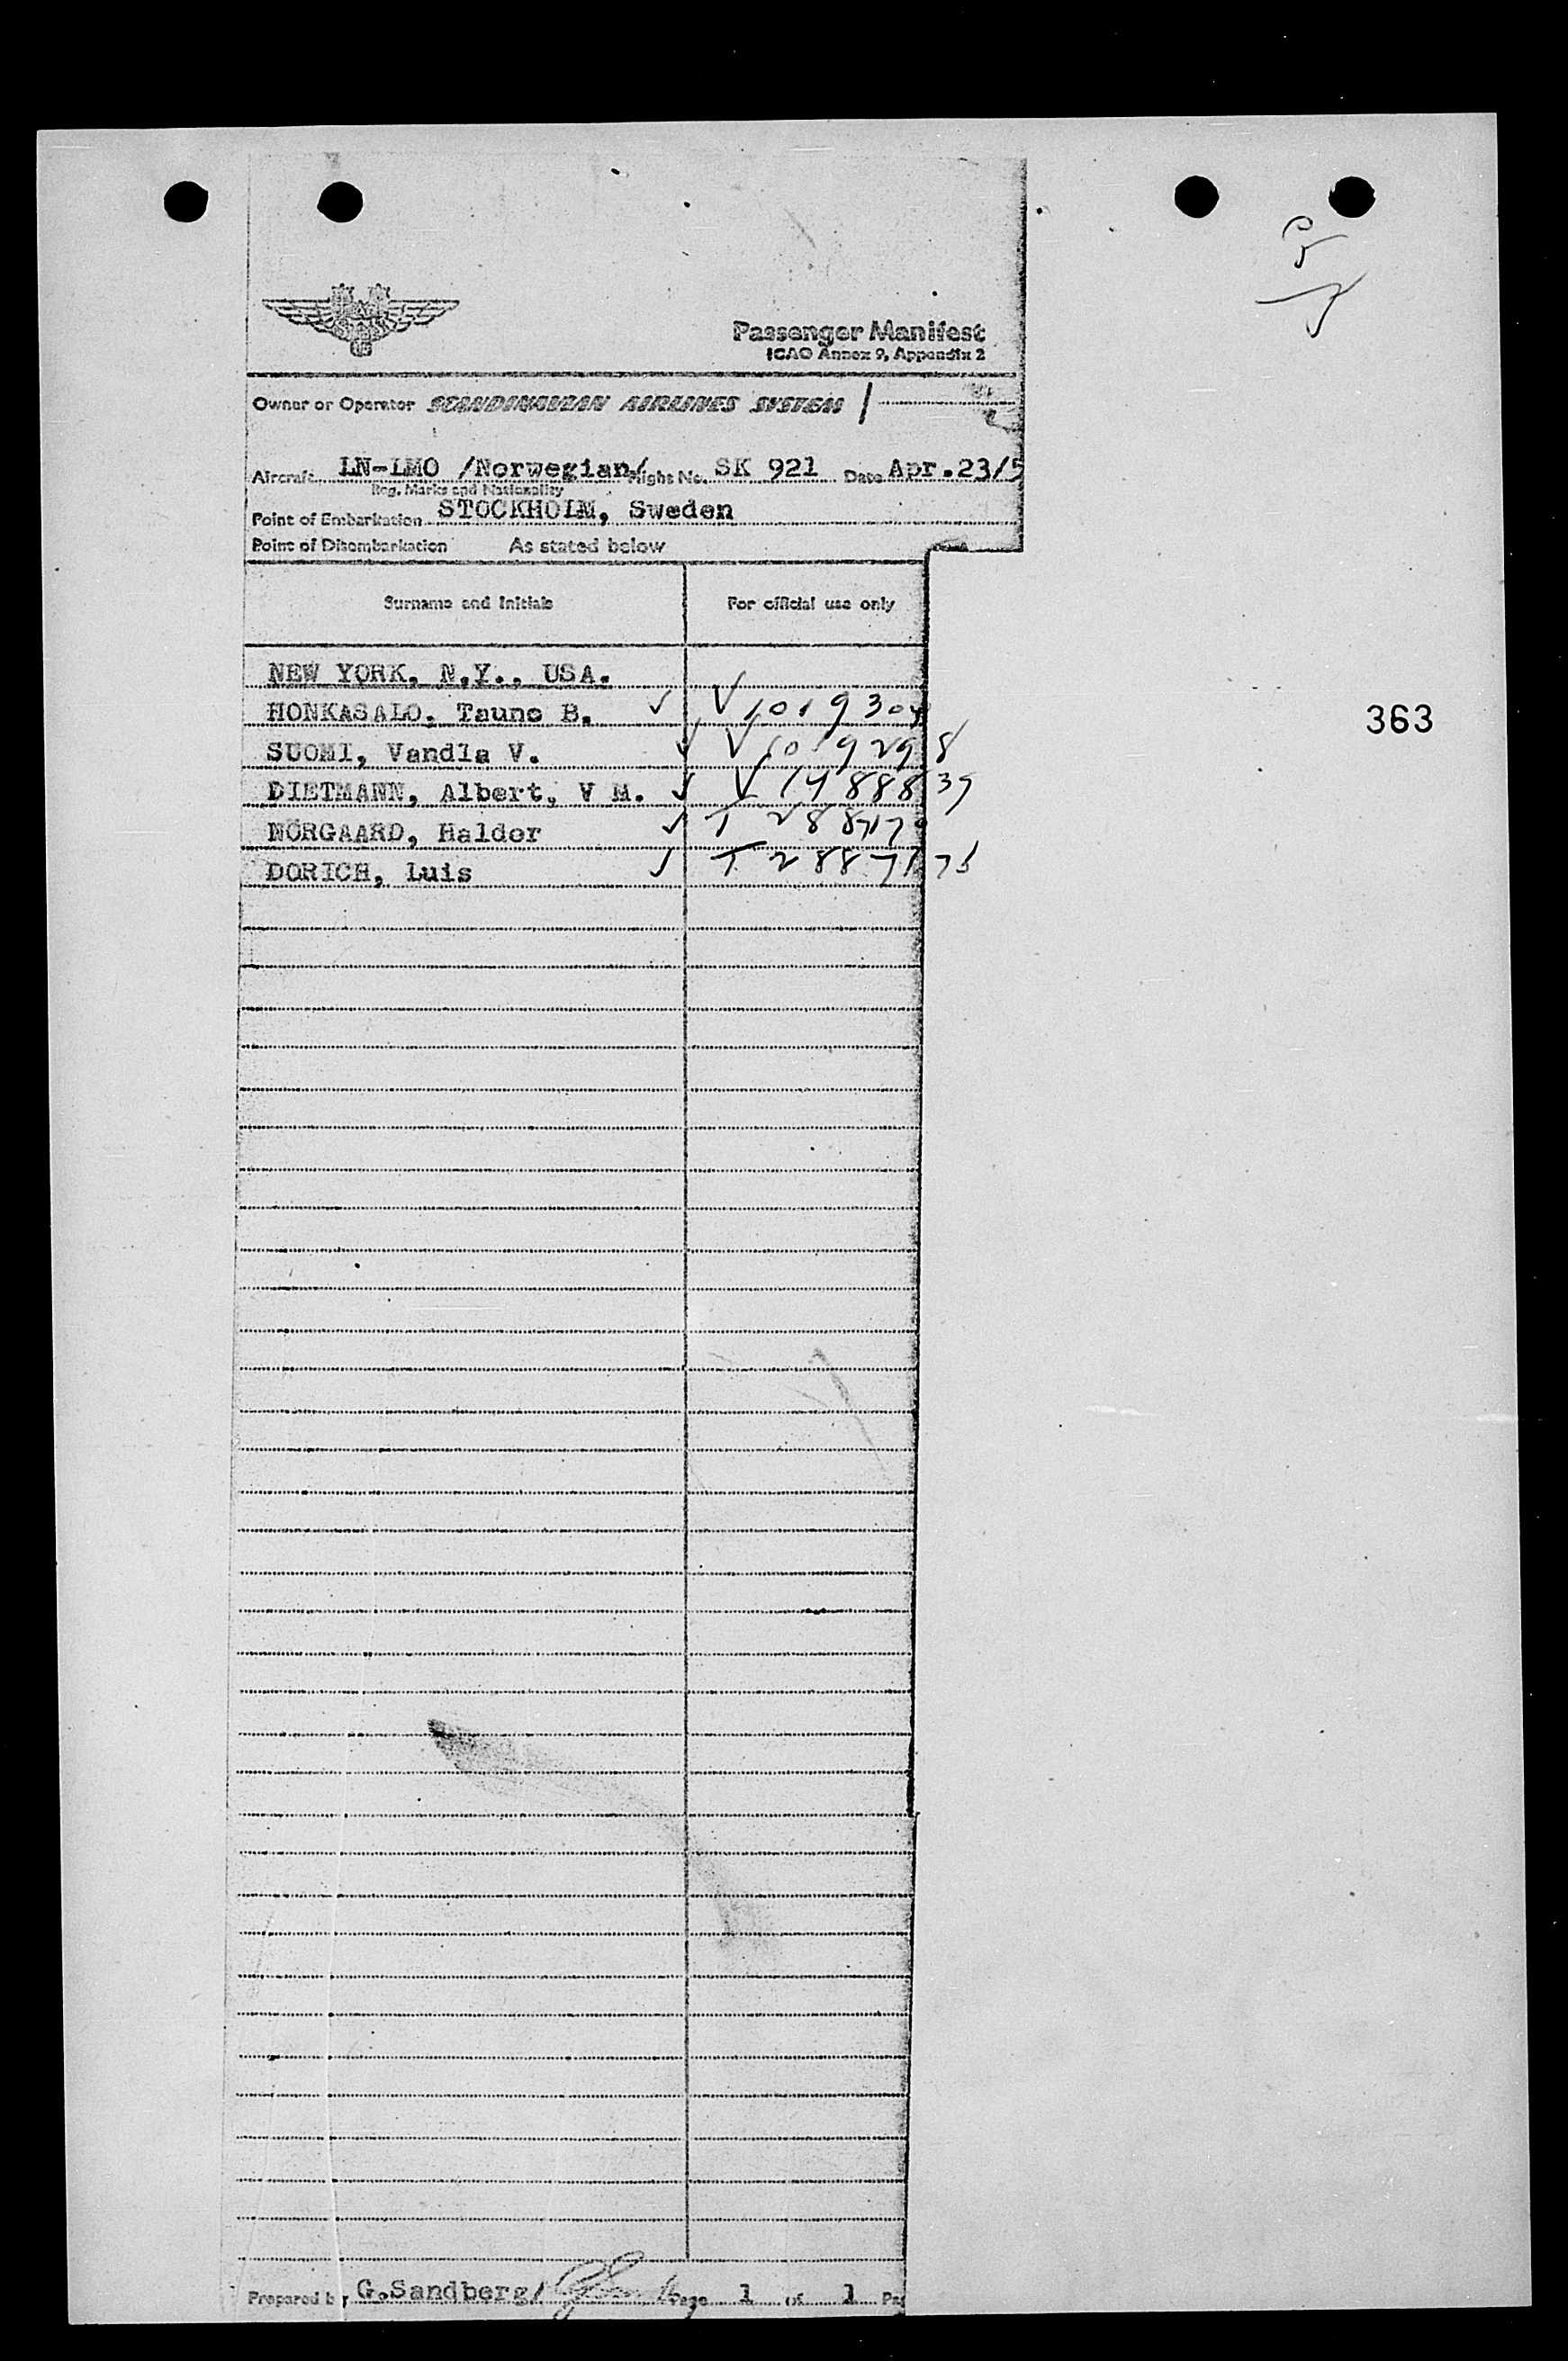 Passenger Manifest
ICAO Annex 9, Appendix 2
Owner or Operator SCANDINAVIAN AIRLINES SYSTEM
Aircraft LN-LMO /Norwegian/ Flight No. SK 921 Date Apr.23/5
Reg. Marks and Nationality
Point of Embarkation STOCKHOLM, Sweden
Point of Disembarkation As stated below
Surname and Initials For official use only
NEW YORK, N.Y., USA.
HONKASALO, Tauno B. ✓ V 1019304
363
SUOMI, Vandla V. ✓ V 1019298
DIETMANN, Albert, V M. ✓ V 1488839
NÖRGAARD, Haldor ✓ T 288717
DORICH, Luis ✓ T 2887173
Prepared by G.Sandberg/ Page 1 of 1 Pag